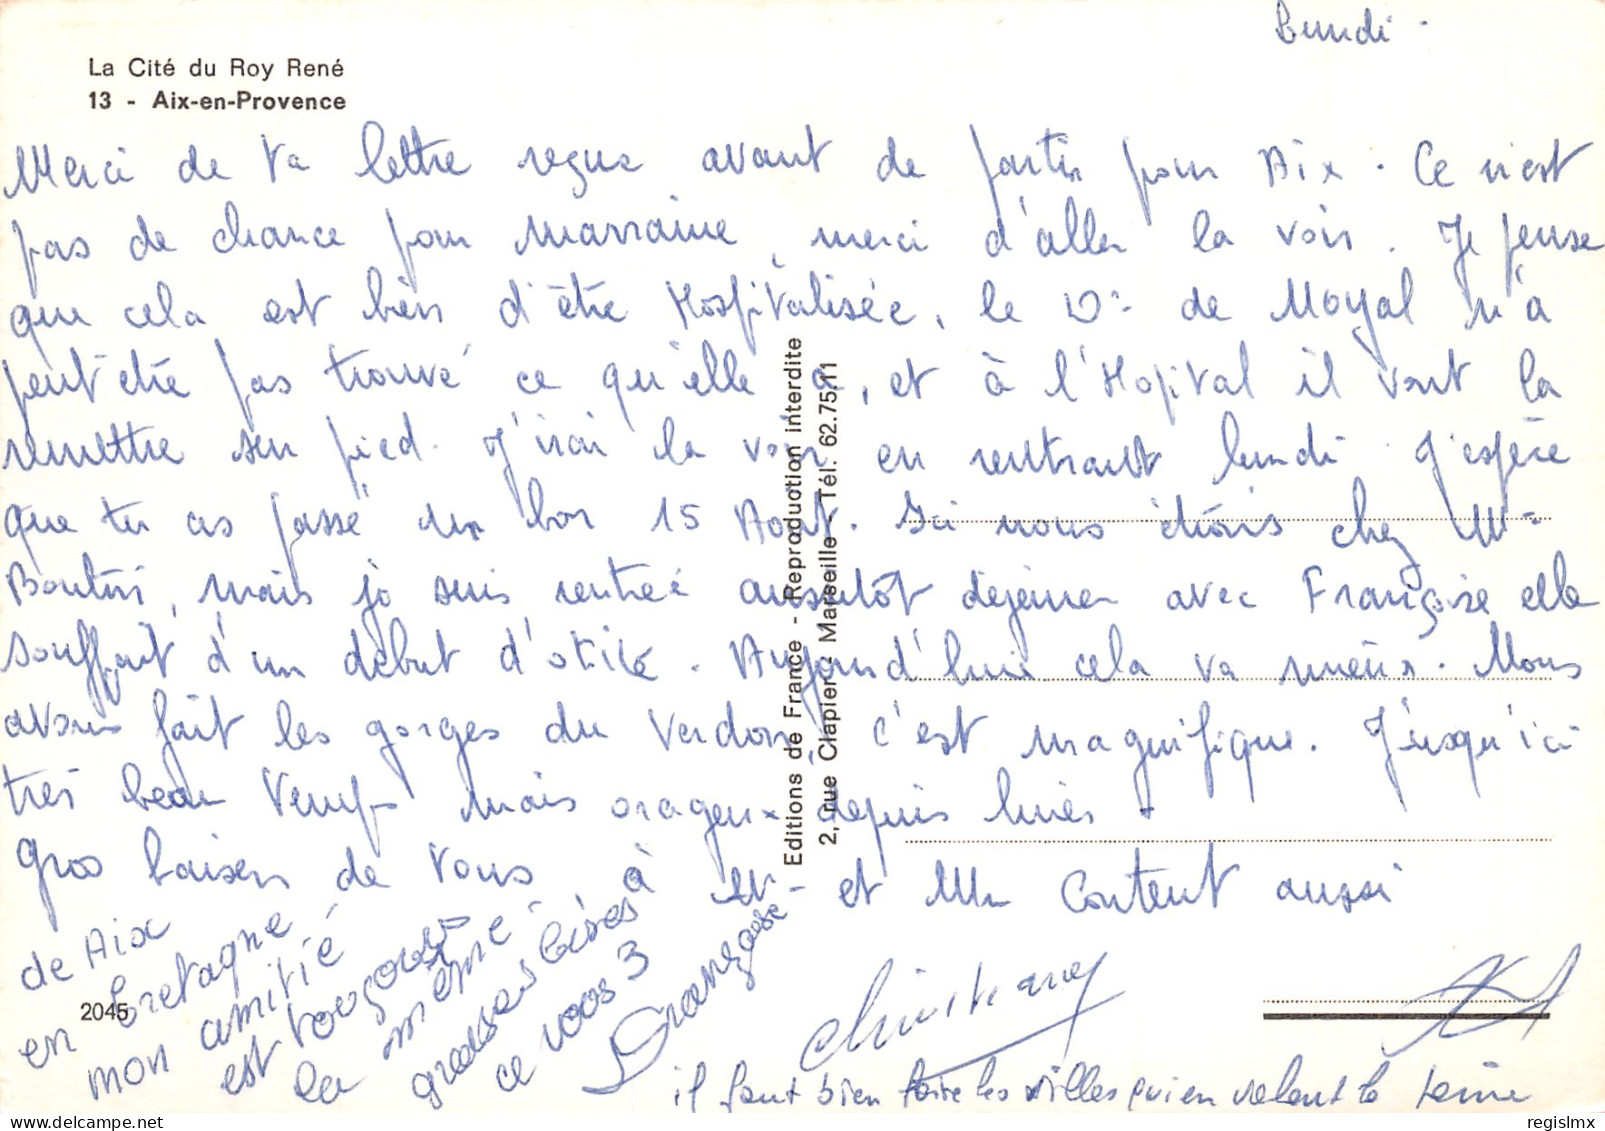 Lundi
La Cité du Roy René
13 - Aix-en-Provence
Merci de ta lettre reçue avant de partir pour Aix. Ce n'est
pas de chance pour Marraine, merci d'aller la voir. Je pense
que cela est bien d'être Hospitalisée, le Dr de Moyal n'a
peut être pas trouvé ce qu'elle a, et à l'Hopital il vont la
remettre sur pied. J'irai la voir en rentrant lundi. J'espère
que tu as passé un bon 15 Aout. Ici nous étions chez Me
Boutin, mais je suis rentreé aussitôt déjeuner avec Françoise elle
souffrait d'un début d'otite. Aujourd'hui cela va mieux. Nous
avons fait les gorges du Verdon, c'est magnifique. Jusqu'ici
très beau Temps mais orageux depuis hier.
Gros baisers de Vous à et Mr Content aussi
de Aix
en bretagne
mon amitié
est toujours
la même
grosses bises
a vous 3
Françoise
Christiane
il faut bien faire les villes qui en valent la peine
2045
Editions de France - Reproduction interdite
2, rue Clapier - Marseille - Tél. 62.75.11
regislmx